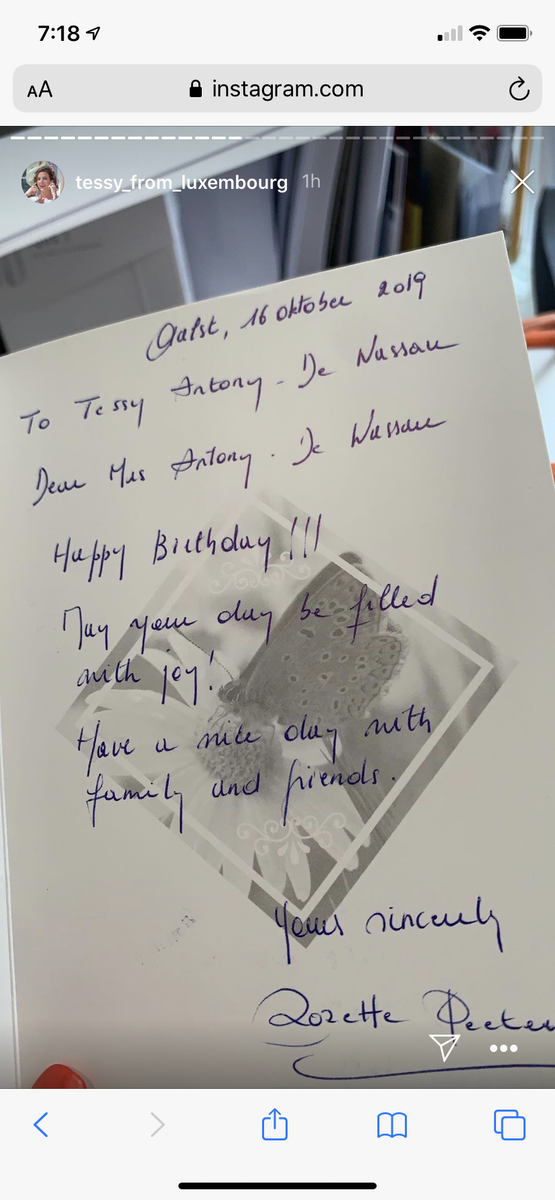 7:18
AA instagram.com
tessy_from_luxembourg 1h
Aalst, 16 oktober 2019
To Tessy Antony - De Nassau
Dear Mrs Antony - De Nassau
Happy Birthday !!!
May your day be filled
with joy!
Have a nice day with
family and friends.
Yours sincerely
Rozette